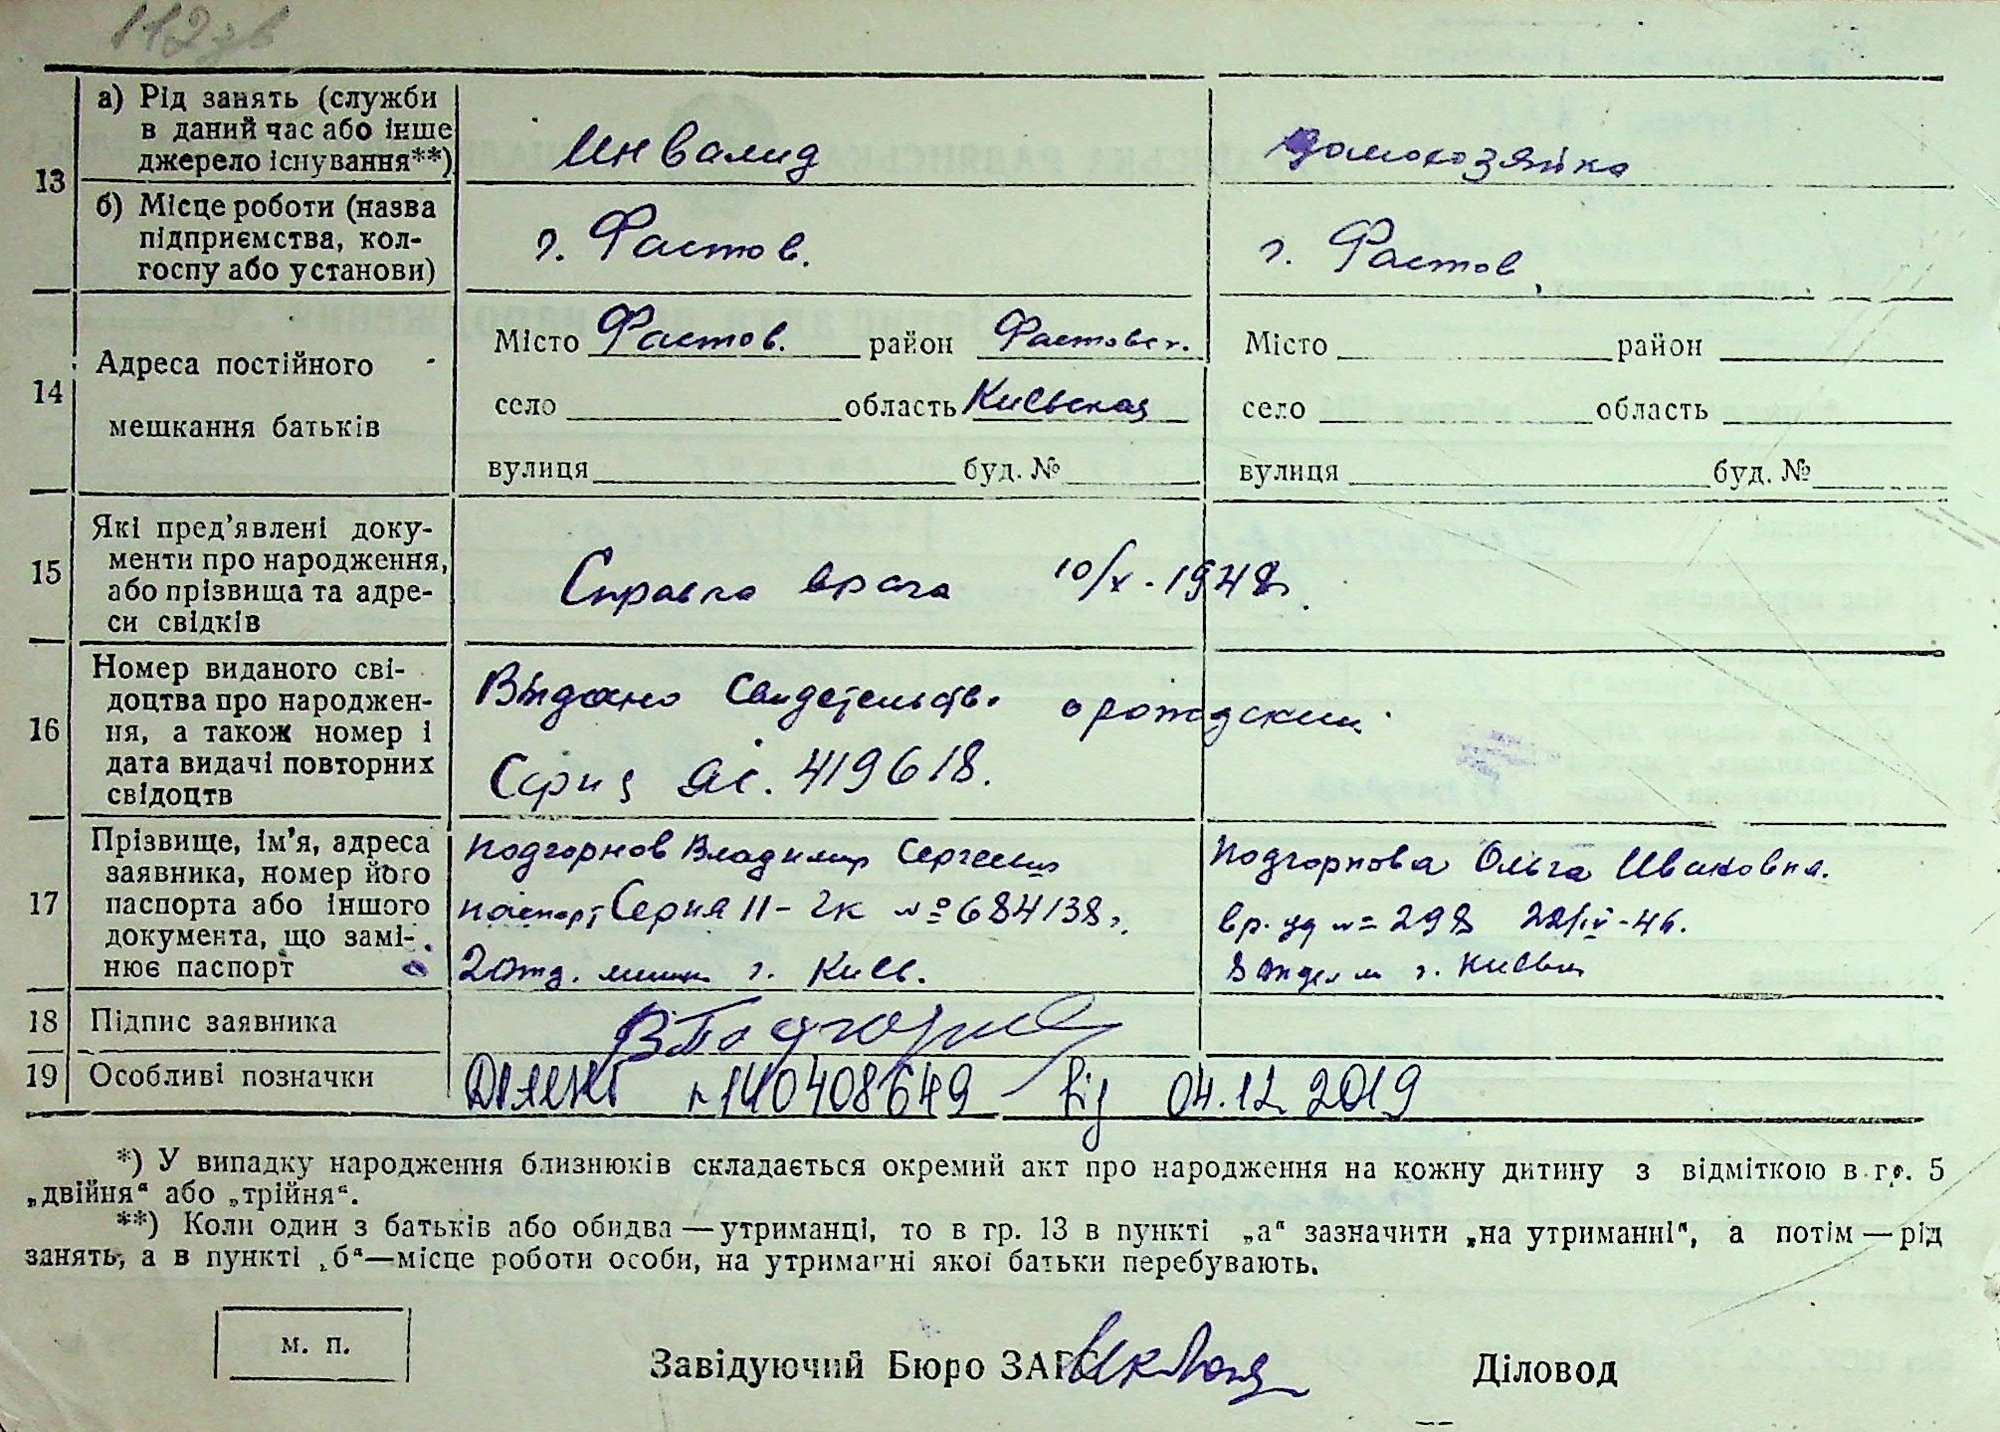 112 зв
13
а) Рід занять (служби
в даний час або інше
джерело існування**)
Инвалид
домохозяйка
б) Місце роботи (назва
підприємства, кол-
госпу або установи)
г. Фастов.
г. Фастов
14
Адреса постійного
мешкання батьків
Місто Фастов. район Фастовск.
село область Киевская
вулиця буд. №
Місто район
село область
вулиця буд. №
15
Які пред'явлені доку-
менти про народження,
або прізвища та адре-
си свідків
Справка врача 10/X-1948г.
16
Номер виданого сві-
доцтва про народжен-
ня, а також номер і
дата видачі повторних
свідоцтв
Выдано Свидетельств. о рождении
Серия 419618.
17
Прізвище, ім'я, адреса
заявника, номер його
паспорта або іншого
документа, що замі-
нює паспорт
Подгорнов Владимир Сергеевич
паспорт Серия II-чк № 684138
2 отд. милиц г. Киев.
Подгорнова Ольга Ивановна.
вр. уд № 298 22/IV-46.
8 отдел м г. Киева
18
Підпис заявника
ВПодгорнов
19
Особливі позначки
від 04.12.2019
*) У випадку народження близнюків складається окремий акт про народження на кожну дитину з відміткою в гр. 5
„двійня“ або „трійня“.
**) Коли один з батьків або обидва — утриманці, то в гр. 13 в пункті „а“ зазначити „на утриманні“, а потім — рід
занять, а в пункті „б“—місце роботи особи, на утриманні якої батьки перебувають.
м. п.
Завідуючий Бюро ЗАГС
Діловод